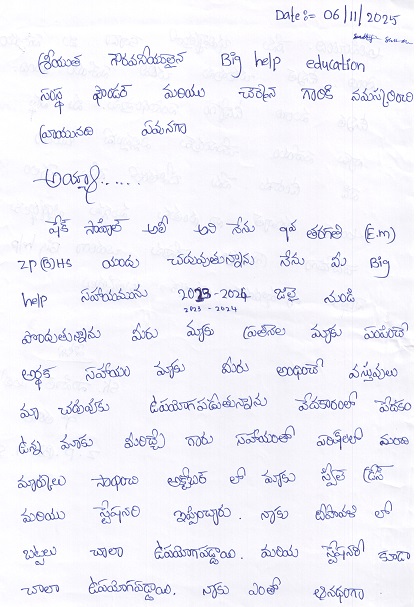 Date:- 06/11/2025
శ్రీయుత గౌరవనీయులైన Big help education
సంస్థ ఫౌండర్ మరియు చైర్మన్ గారికి నమస్కరించి
వ్రాయునది ఏమనగా
అయ్యా......
షేక్ సాహిల్ అలీ అను నేను ఇవ తరగతి (E.m)
ZP(B)HS యందు చదువుతున్నాను నేను మీ Big
help సహాయమును 2023-2024 జులై నుండి
2023 - 2024
పొందుతున్నాను మీరు మాకు ప్రతినెల మాకు పంపించే
ఆర్థిక సహాయం మాకు మీరు అందించే వస్తువులు
మా చదువుకు ఉపయోగపడుతున్నాను పేదరికంలో
ఉన్న మాకు మీరిచ్చే గారు సహాయంతో పరీక్షలలో మంచి
మార్కులు సాధించి అక్టోబర్ లో మాకు స్కూల్ డ్రెస్
మరియు స్టేషనరీ ఇప్పించారు. నాకు దీపావళి లో
బట్టలు చాలా ఉపయోగపడ్డాయి. మరియు స్టేషనరీ కూడా
చాలా ఉపయోగపడ్డాయి. నాకు ఎంతో ఆనందంగా